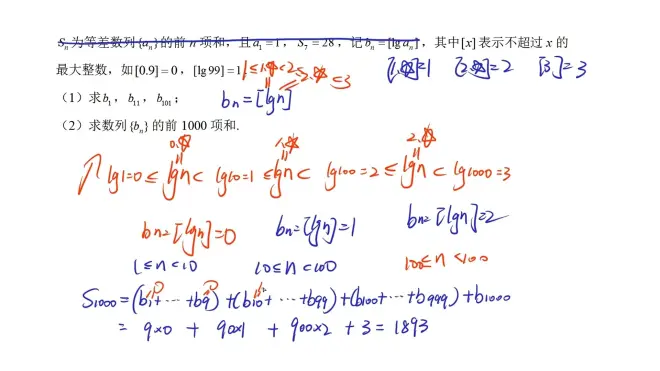 Sn 为等差数列{an}的前 n 项和，且 a1=1，S7=28，记 bn=[lg an]，其中[x]表示不超过 x 的
最大整数，如[0.9]=0，[lg99]=1
（1）求b1，b11，b101；
（2）求数列{bn}的前 1000 项和.
bn=[lgn]
lg1=0≤lgn<lg10=1≤lgn<lg100=2≤lgn<lg1000=3
bn=[lgn]=0 bn=[lgn]=1 bn=[lgn]=2
1≤n<10 10≤n<100 100≤n<100
S1000=(b1+…+b9)+(b10+…+b99)+(b100+…+b999)+b1000
= 9×0 + 90×1 + 900×2 + 3=1893